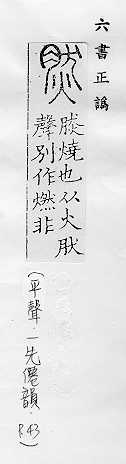 六書正譌
然
燒也从火肰
聲別作燃非
(平聲．一先僊韻．P.43)